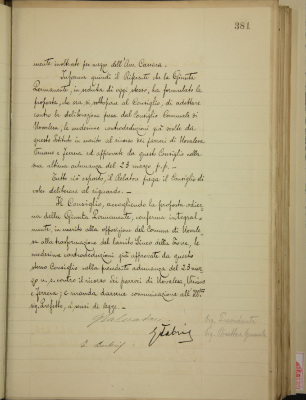 381
mente inoltrato pu mezzo dell'Avv. Camina.
Informa quindi il Riferente che la Giunta
Permanente, in seduta di oggi stesso, ha formulato la
proposta, che ora si sottopone al Consiglio, di adottare
contro la deliberazione presa dal Consiglio Comunale di
Novalesa, le medesime controdeduzioni già svolte da
questo Istituto in merito al ricorso dei parroci di Novalesa,
Venaus e Ferrera ed approvate da questo Consiglio nella
sua ultima adunanza del 23 marzo p. p. –
Tutto ciò esposto, il Relatore prega il Consiglio di
voler deliberare al riguardo. –
Il Consiglio, accogliendo la proposta odier
na della Giunta Permanente, conferma integral
mente, in merito alla opposizione del Comune di Novale
sa alla trasformazione del lascito, le
medesime controdeduzioni già approvate da questo
stesso Consiglio nella precedente adunanza del 23 mar
zo u. s. contro il ricorso dei parroci di Novalesa, Venaus
e Ferrera; e manda darsene comunicazione all'Ill.mo
sig. Prefetto, ai sensi di legge. –